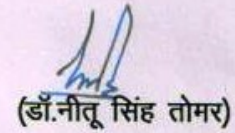 (डॉ.नीतू सिंह तोमर)